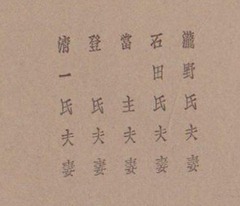 瀧野氏夫妻
石田氏夫妻
當主夫妻
登氏夫妻
清一氏夫妻